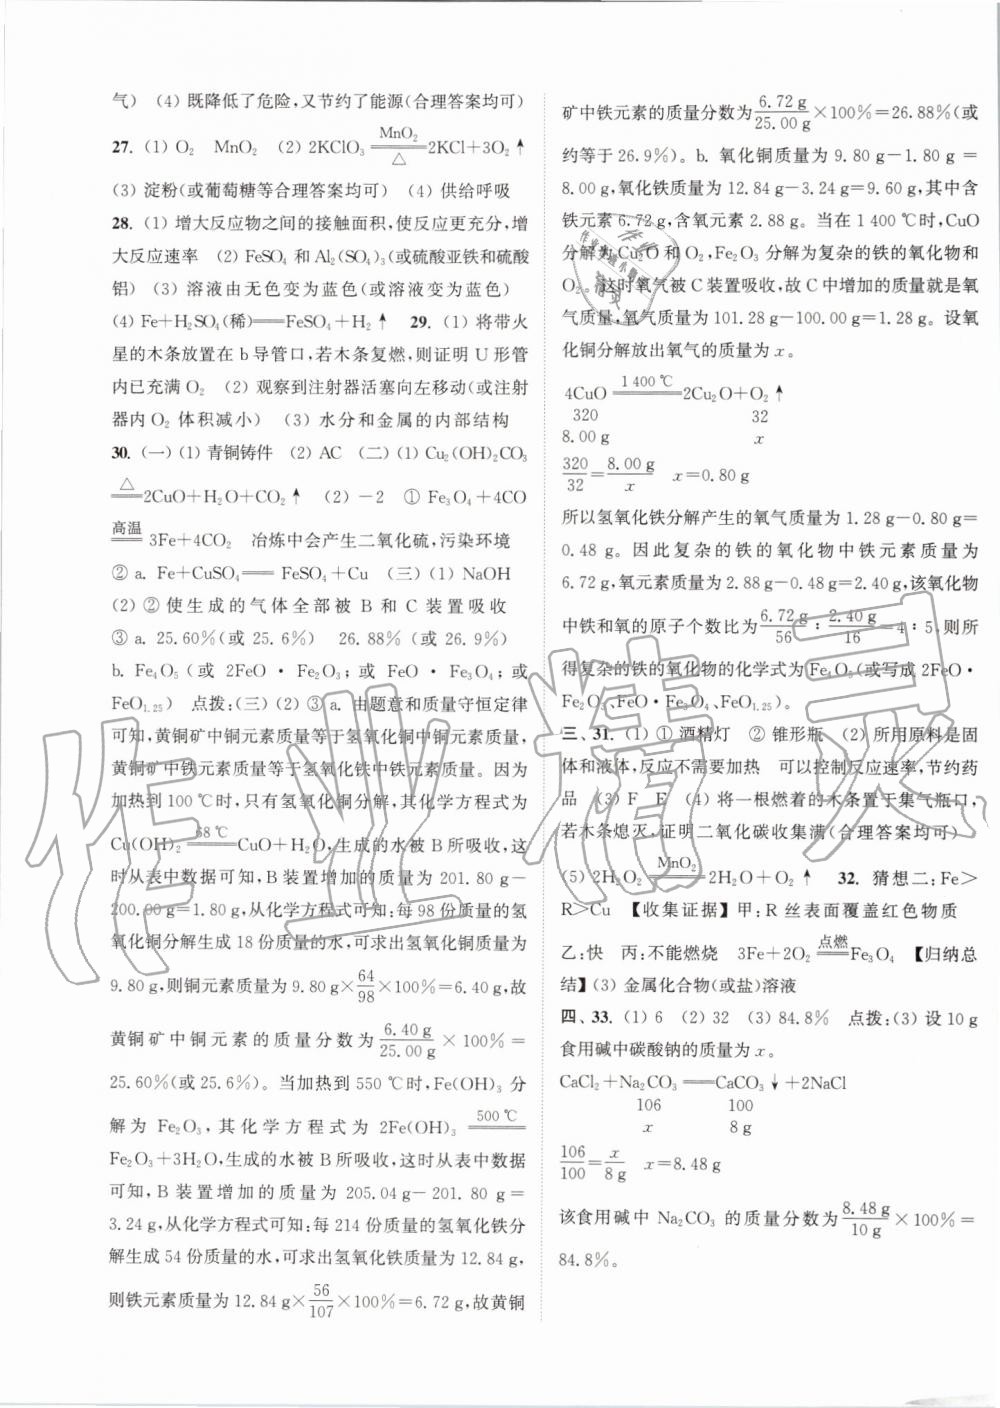 气) (4) 既降低了危险,又节约了能源(合理答案均可)
27. (1) O₂ MnO₂ (2) 2KClO₃ =MnO₂/△= 2KCl+3O₂↑
(3) 淀粉(或葡萄糖等合理答案均可) (4) 供给呼吸
28. (1) 增大反应物之间的接触面积,使反应更充分,增
大反应速率 (2) FeSO₄ 和 Al₂(SO₄)₃(或硫酸亚铁和硫酸
铝) (3) 溶液由无色变为蓝色(或溶液变为蓝色)
(4) Fe+H₂SO₄(稀)══FeSO₄+H₂↑ 29. (1) 将带火
星的木条放置在 b 导管口,若木条复燃,则证明 U 形管
内已充满 O₂ (2) 观察到注射器活塞向左移动(或注射
器内 O₂ 体积减小) (3) 水分和金属的内部结构
30. (一) (1) 青铜铸件 (2) AC (二) (1) Cu₂(OH)₂CO₃
=△=2CuO+H₂O+CO₂↑ (2) -2 ① Fe₃O₄+4CO
=高温=3Fe+4CO₂ 冶炼中会产生二氧化硫,污染环境
② a. Fe+CuSO₄══FeSO₄+Cu (三) (1) NaOH
(2) ② 使生成的气体全部被 B 和 C 装置吸收
③ a. 25.60%(或 25.6%) 26.88%(或 26.9%)
b. Fe₄O₅(或 2FeO·Fe₂O₃;或 FeO·Fe₃O₄;或
FeO₁.₂₅) 点拨:(三) (2) ③ a. 由题意和质量守恒定律
可知,黄铜矿中铜元素质量等于氢氧化铜中铜元素质量,
黄铜矿中铁元素质量等于氢氧化铁中铁元素质量。因为
加热到 100 ℃时,只有氢氧化铜分解,其化学方程式为
Cu(OH)₂ =68 ℃= CuO+H₂O,生成的水被 B 所吸收,这
时从表中数据可知,B 装置增加的质量为 201.80 g-
200.00 g=1.80 g,从化学方程式可知:每 98 份质量的氢
氧化铜分解生成 18 份质量的水,可求出氢氧化铜质量为
9.80 g,则铜元素质量为 9.80 g×64/98×100%=6.40 g,故
黄铜矿中铜元素的质量分数为 6.40 g/25.00 g×100%=
25.60%(或 25.6%)。当加热到 550 ℃时,Fe(OH)₃ 分
解为 Fe₂O₃,其化学方程式为 2Fe(OH)₃ =500 ℃=
Fe₂O₃+3H₂O,生成的水被 B 所吸收,这时从表中数据
可知,B 装置增加的质量为 205.04 g-201.80 g=
3.24 g,从化学方程式可知:每 214 份质量的氢氧化铁分
解生成 54 份质量的水,可求出氢氧化铁质量为 12.84 g,
则铁元素质量为 12.84 g×56/107×100%=6.72 g,故黄铜
矿中铁元素的质量分数为 6.72 g/25.00 g×100%=26.88%(或
约等于 26.9%)。b. 氧化铜质量为 9.80 g-1.80 g=
8.00 g,氧化铁质量为 12.84 g-3.24 g=9.60 g,其中含
铁元素 6.72 g,含氧元素 2.88 g。当在 1 400 ℃时,CuO
分解为 Cu₂O 和 O₂,Fe₂O₃ 分解为复杂的铁的氧化物和
O₂。这时氧气被 C 装置吸收,故 C 中增加的质量就是氧
气质量,氧气质量为 101.28 g-100.00 g=1.28 g。设氧
化铜分解放出氧气的质量为 x。
4CuO =1 400 ℃= 2Cu₂O+O₂↑
320 32
8.00 g x
320/32=8.00 g/x x=0.80 g
所以氢氧化铁分解产生的氧气质量为 1.28 g-0.80 g=
0.48 g。因此复杂的铁的氧化物中铁元素质量为
6.72 g,氧元素质量为 2.88 g-0.48 g=2.40 g,该氧化物
中铁和氧的原子个数比为 6.72 g/56:2.40 g/16=4:5,则所
得复杂的铁的氧化物的化学式为 Fe₄O₅(或写成 2FeO·
Fe₂O₃、FeO·Fe₃O₄、FeO₁.₂₅)。
三、31. (1) ① 酒精灯 ② 锥形瓶 (2) 所用原料是固
体和液体,反应不需要加热 可以控制反应速率,节约药
品 (3) F E (4) 将一根燃着的木条置于集气瓶口,
若木条熄灭,证明二氧化碳收集满(合理答案均可)
(5) 2H₂O₂ =MnO₂= 2H₂O+O₂↑ 32. 猜想二:Fe>
R>Cu 【收集证据】甲:R 丝表面覆盖红色物质
乙:快 丙:不能燃烧 3Fe+2O₂ =点燃= Fe₃O₄ 【归纳总
结】(3) 金属化合物(或盐)溶液
四、33. (1) 6 (2) 32 (3) 84.8% 点拨:(3) 设 10 g
食用碱中碳酸钠的质量为 x。
CaCl₂+Na₂CO₃══CaCO₃↓+2NaCl
106 100
x 8 g
106/100=x/8 g x=8.48 g
该食用碱中 Na₂CO₃ 的质量分数为 8.48 g/10 g×100%=
84.8%。
作业精灵